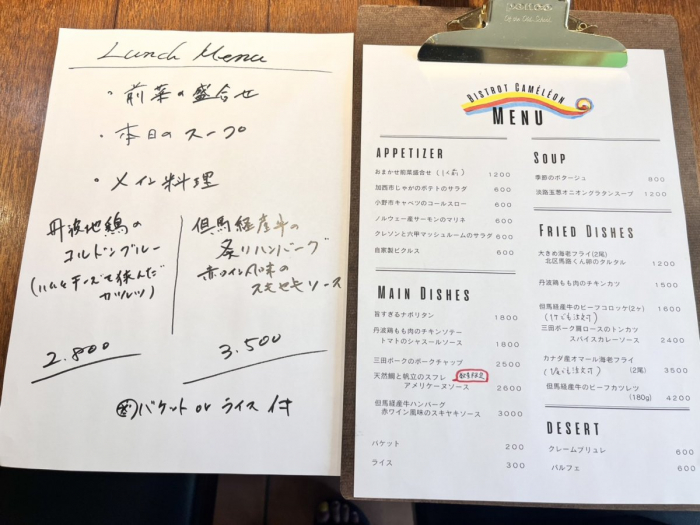 Lunch Menu
・前菜の盛合せ
・本日のスープ
・メイン料理
丹波地鶏の
コルドンブルー
(ハムとチーズを挟んだ
カツレツ)
2.800
但馬経産牛の
炙りハンバーグ
赤ワイン風味の
スキヤキソース
3.500
バケット or ライス 付
BISTROT CAMÉLÉON
MENU
APPETIZER
おまかせ前菜盛合せ (1人前) 1200
加西市じゃがのポテトのサラダ 600
小野市キャベツのコールスロー 600
ノルウェー産サーモンのマリネ 600
クレソンと六甲マッシュルームのサラダ 600
自家製ピクルス 600
MAIN DISHES
旨すぎるナポリタン 1800
丹波鶏もも肉のチキンソテー
トマトのシャスールソース 1800
三田ポークのポークチャップ 2500
天然鯛と帆立のスフレ 数量限定
アメリケーヌソース 2600
但馬経産牛ハンバーグ
赤ワイン風味のスキヤキソース 3000
バケット 200
ライス 300
SOUP
季節のポタージュ 600
淡路玉葱オニオングラタンスープ 1200
FRIED DISHES
大きめ海老フライ(2尾)
北区馬路くん卵のタルタル 1200
丹波鶏もも肉のチキンカツ 1500
但馬経産牛のビーフコロッケ(2ヶ) 1600
(1ケでも注文可)
三田ポーク肩ロースのトンカツ
スパイスカレーソース 2400
カナダ産オマール海老フライ
(1/2でも注文可) (2尾) 3500
但馬経産牛のビーフカツレツ
(180g) 4200
DESERT
クレームブリュレ 600
パルフェ 600